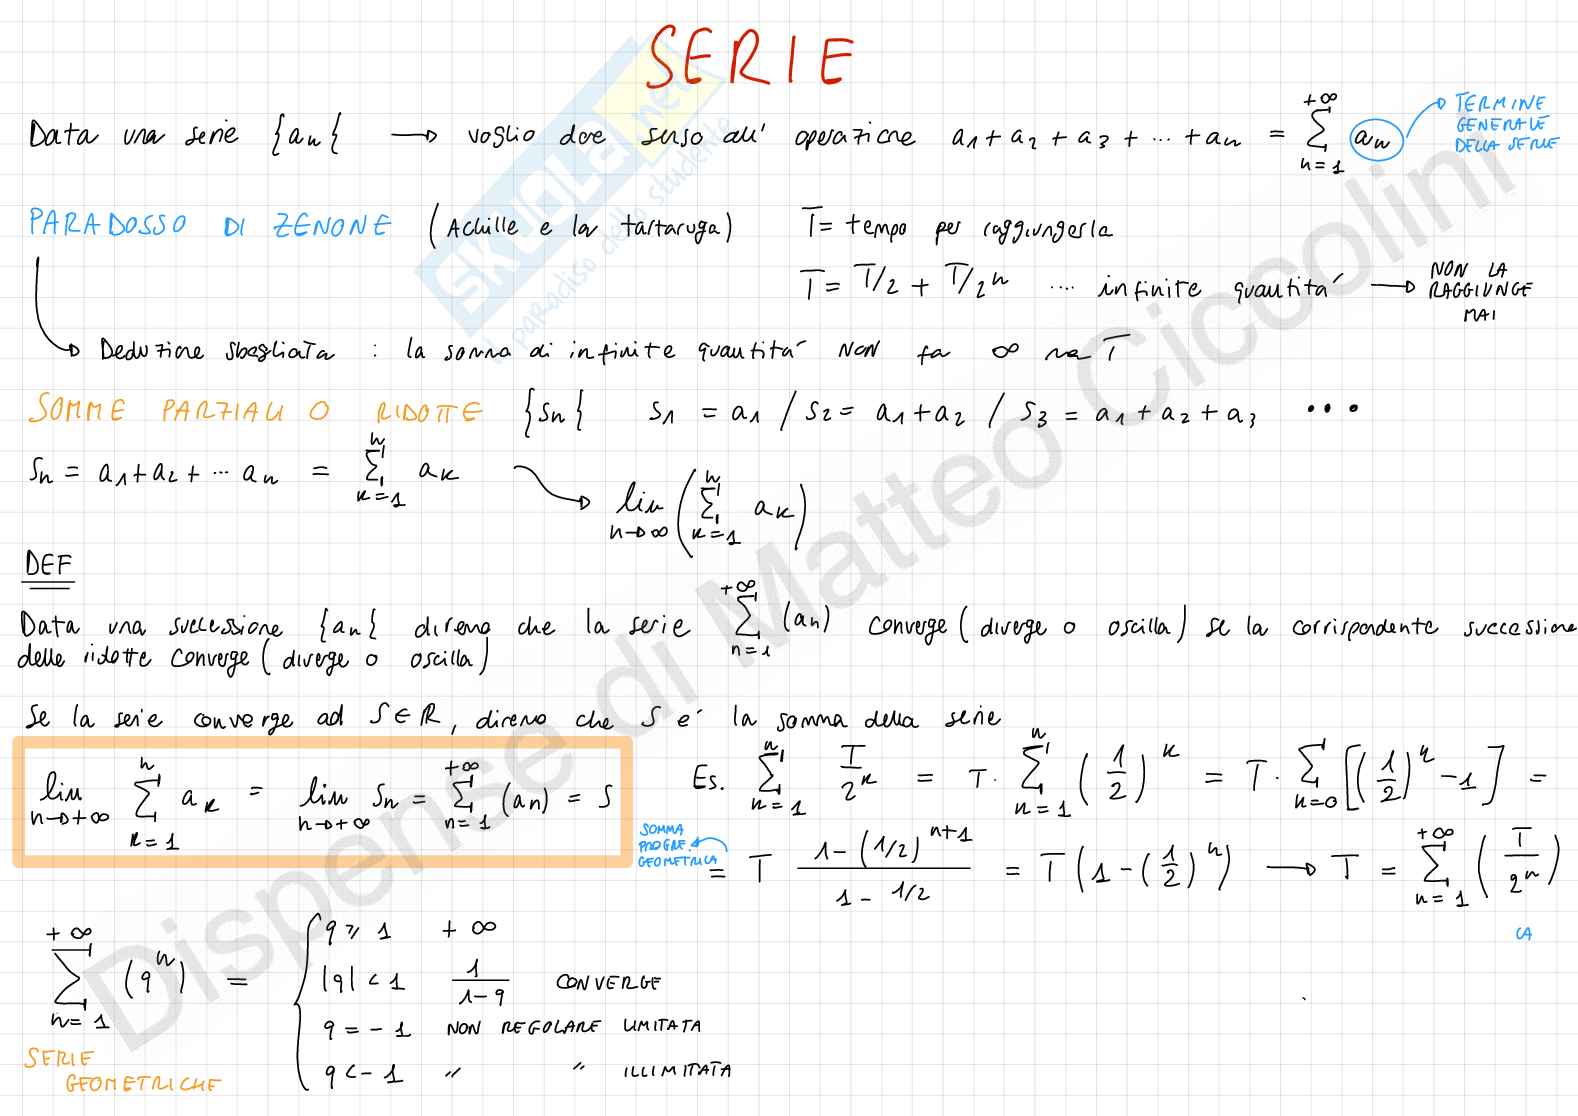 SERIE
Data una serie {an} → voglio dare senso all' operazione a1 + a2 + a3 + ... + an = +∞ Σ n=1 an → TERMINE GENERALE DELLA SERIE
PARADOSSO DI ZENONE (Achille e la tartaruga) T = tempo per raggiungerla
T = T/2 + T/2^n .... infinite quantità → NON LA RAGGIUNGE MAI
→ Deduzione sbagliata : la somma di infinite quantità NON fa ∞ ma T
SOMME PARZIALI O RIDOTTE {sn} s1 = a1 / s2 = a1 + a2 / s3 = a1 + a2 + a3 ...
sn = a1 + a2 + ... an = n Σ k=1 ak
→ lim n→∞ ( n Σ k=1 ak )
DEF
Data una successione {an} diremo che la serie +∞ Σ n=1 (an) converge (diverge o oscilla) se la corrispondente successione
delle ridotte converge (diverge o oscilla)
Se la serie converge ad S∈R, diremo che S e' la somma della serie
lim n→+∞ n Σ k=1 ak = lim n→+∞ sn = +∞ Σ n=1 (an) = S
Es. n Σ n=1 T/2^k = T · n Σ n=1 (1/2)^k = T · Σ n=0 [(1/2)^n - 1] =
SOMMA PROGRE. GEOMETRICA
= T (1 - (1/2)^n+1)/(1 - 1/2) = T (1 - (1/2)^n) → T = +∞ Σ n=1 (T/2^n)
CA
+∞ Σ n=1 (q^n) = {
q ≥ 1 +∞
|q| < 1 1/(1-q) CONVERGE
q = -1 NON REGOLARE LIMITATA
q < -1 " " ILLIMITATA
SERIE
GEOMETRICHE
SKUOLA.net
paradiso dello studente
Dispense di Matteo Ciccolini